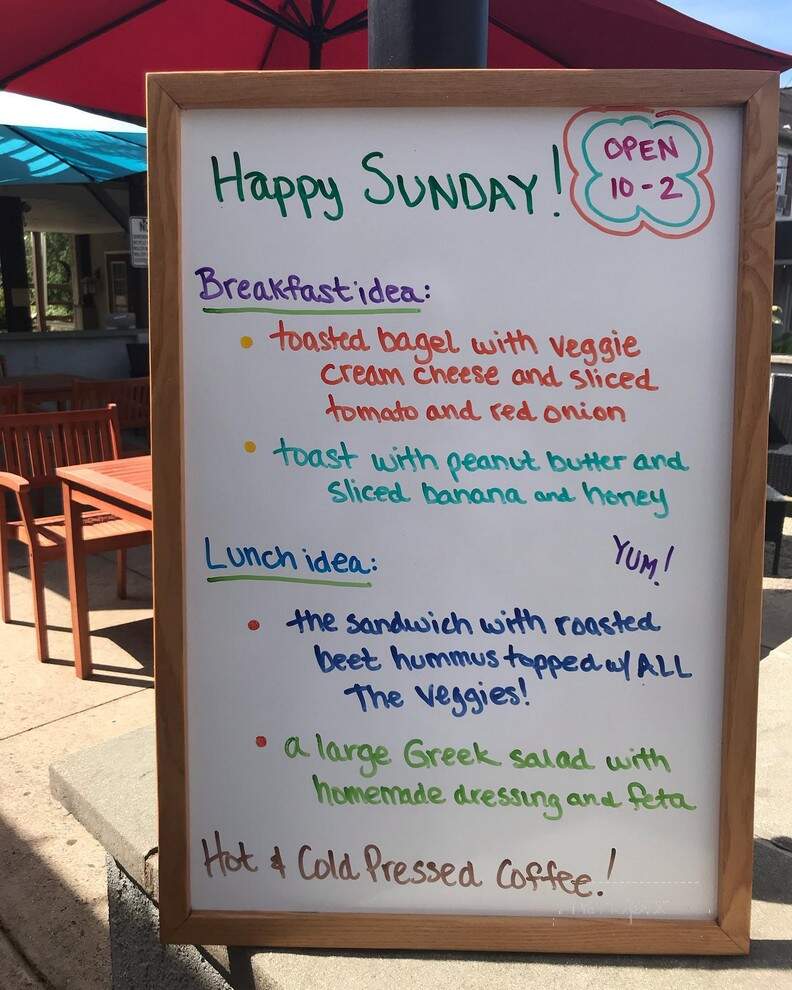 Happy SUNDAY!
OPEN
10-2
Breakfast idea:
• toasted bagel with veggie
cream cheese and sliced
tomato and red onion
• toast with peanut butter and
sliced banana and honey
Lunch idea:
YUM!
• the sandwich with roasted
beet hummus topped w/ ALL
The veggies!
• a large Greek salad with
homemade dressing and feta
Hot & Cold Pressed Coffee!